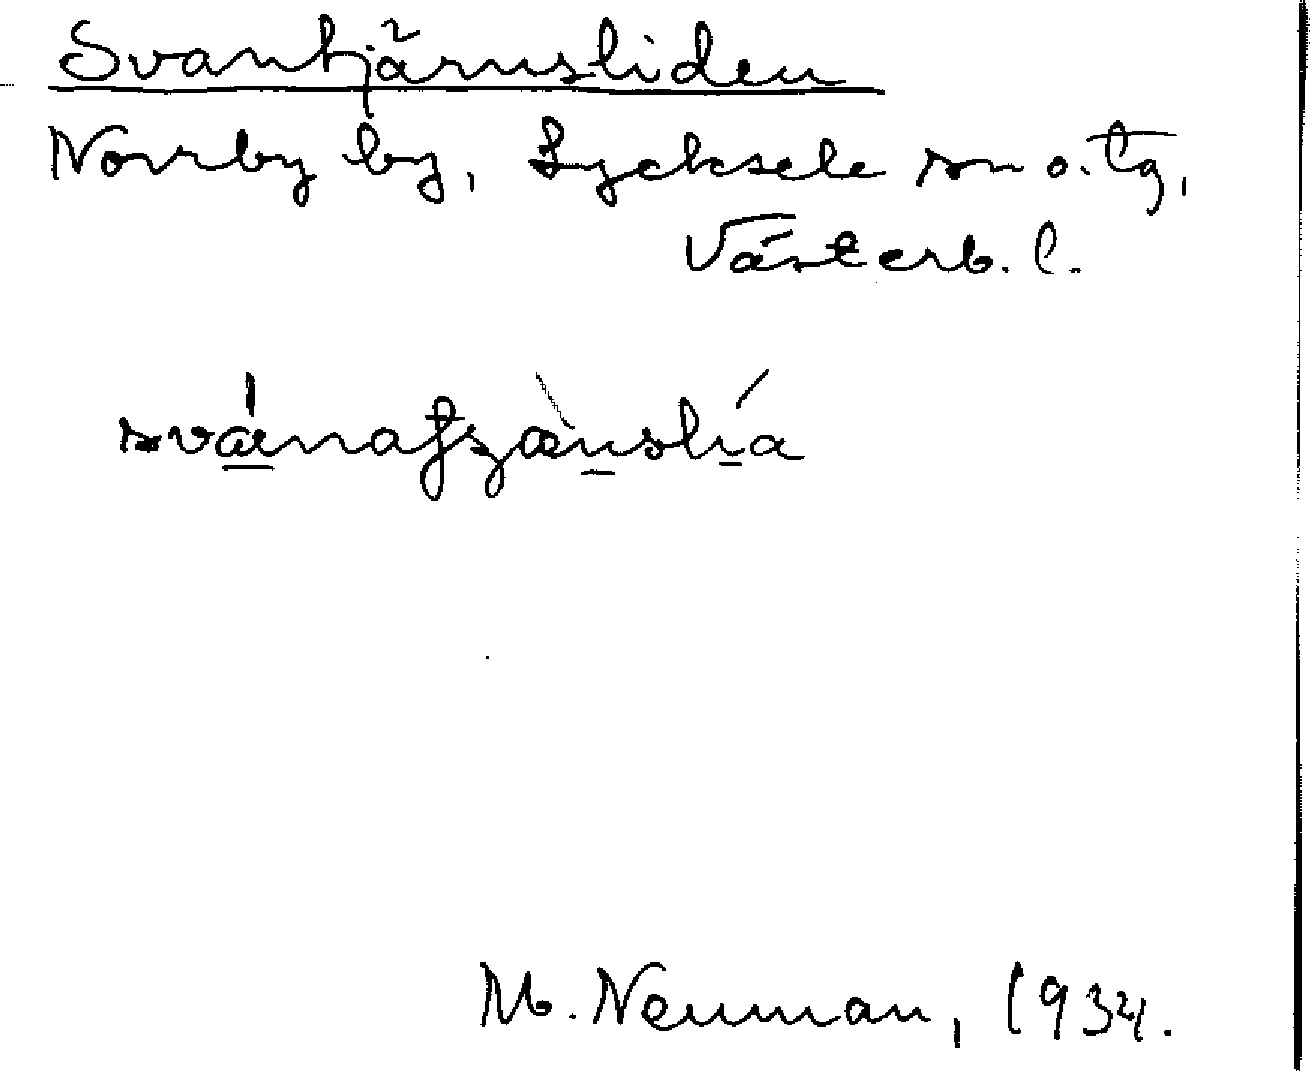 Svantjärnsliden
Norrby by, Lycksele sn o. tg,
Västerb. l.
M. Neuman, 1934.